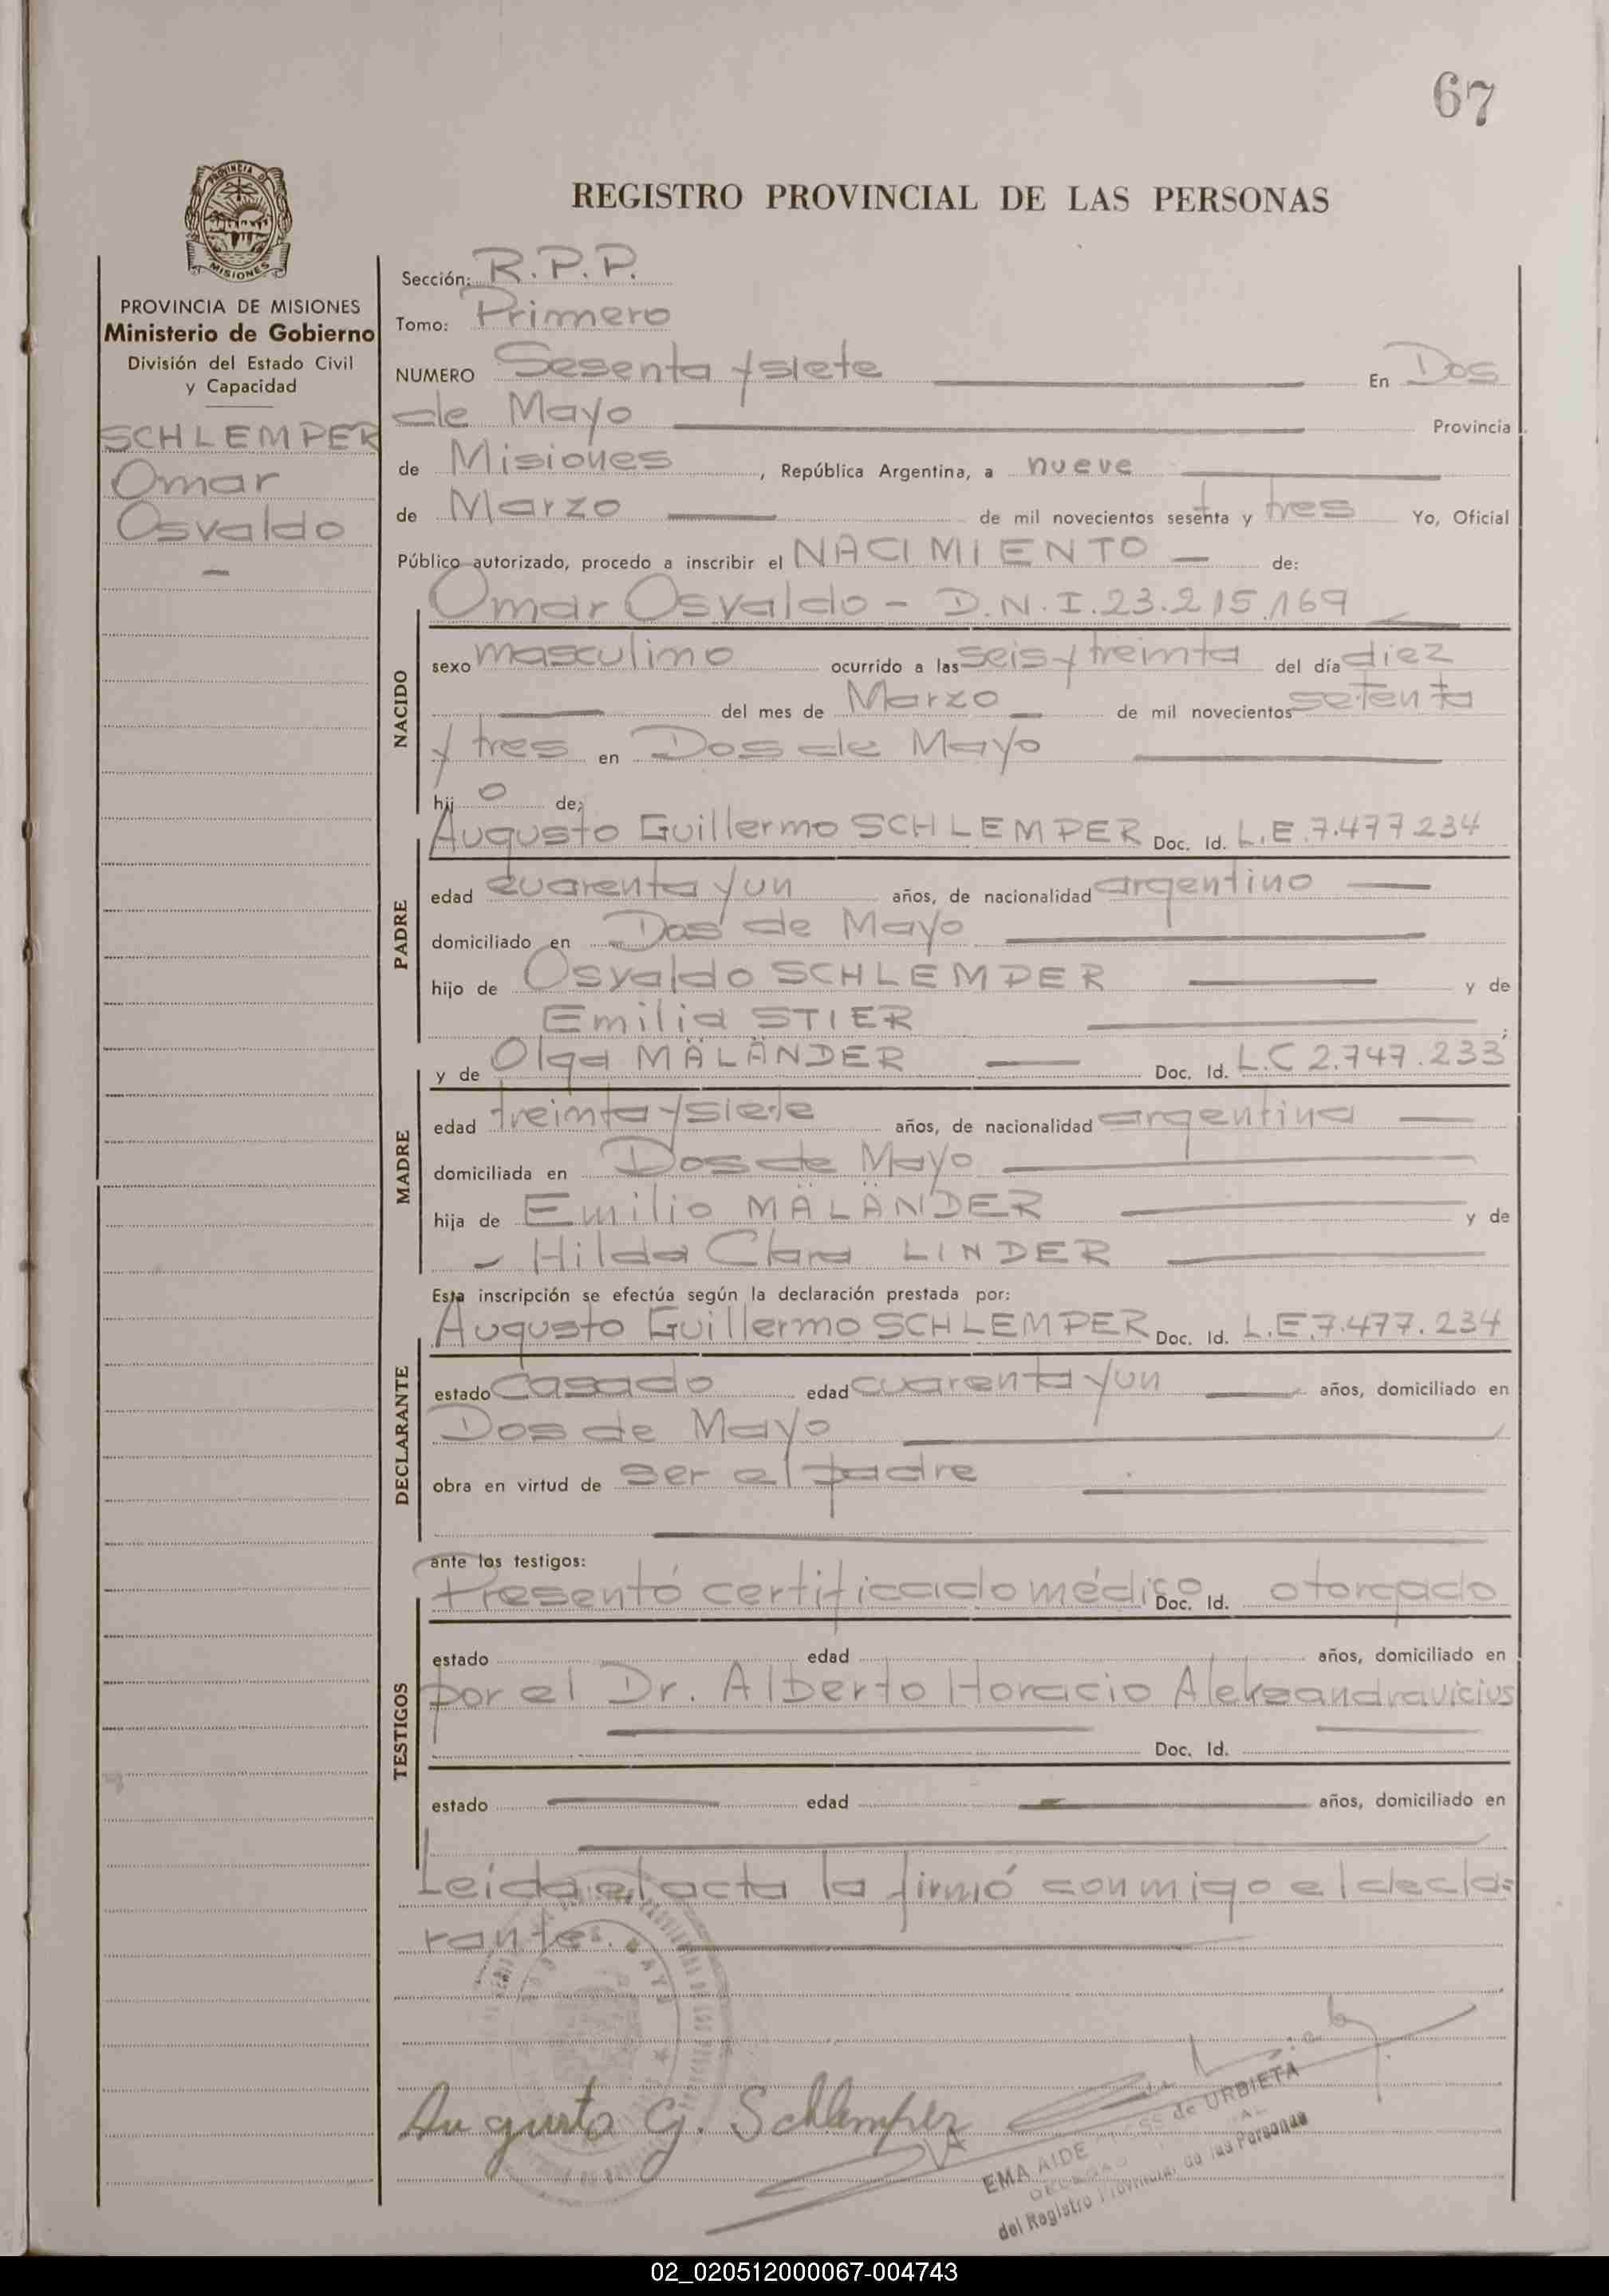 67
PROVINCIA DE
MISIONES
REGISTRO PROVINCIAL DE LAS PERSONAS
PROVINCIA DE MISIONES
Ministerio de Gobierno
División del Estado Civil
y Capacidad
SCHLEMPER
Omar
Osvaldo
—
Sección: R.P.P.
Tomo: Primero
NUMERO Sesenta y siete En Dos
de Mayo Provincia
de Misiones, República Argentina, a nueve
de Marzo de mil novecientos sesenta y tres Yo, Oficial
Público autorizado, procedo a inscribir el NACIMIENTO — de:
NACIDO
Omar Osvaldo - D.N.I. 23.215.169
sexo masculino ocurrido a las seis y treinta del día diez
del mes de Marzo — de mil novecientos setenta
y tres en Dos de Mayo
hijo de:
PADRE
Augusto Guillermo SCHLEMPER Doc. Id. L.E. 7.477.234
edad cuarenta y un años, de nacionalidad argentino
domiciliado en Dos de Mayo
hijo de Osvaldo SCHLEMPER y de
Emilia STIER ;
MADRE
y de Olga MÄLÄNDER Doc. Id. L.C 2.747.233
edad treinta y siete años, de nacionalidad argentina
domiciliada en Dos de Mayo
hija de Emilio MÄLÄNDER y de
- Hilda Clara LINDER
Esta inscripción se efectúa según la declaración prestada por:
DECLARANTE
Augusto Guillermo SCHLEMPER Doc. Id. L.E. 7.477.234
estado casado edad cuarenta y un años, domiciliado en
Dos de Mayo
obra en virtud de ser el padre
ante los testigos:
TESTIGOS
Presentó certificado médico Doc. Id. otorgado
estado edad años, domiciliado en
por el Dr. Alberto Horacio Aleksandravicius
Doc. Id.
estado edad años, domiciliado en
Leida el acta la firmó conmigo el decla=
rante.
Augusto G. Schlemper
EMA AIDE de URDIETA
del Registro Provincial de las Personas
02_020512000067-004743